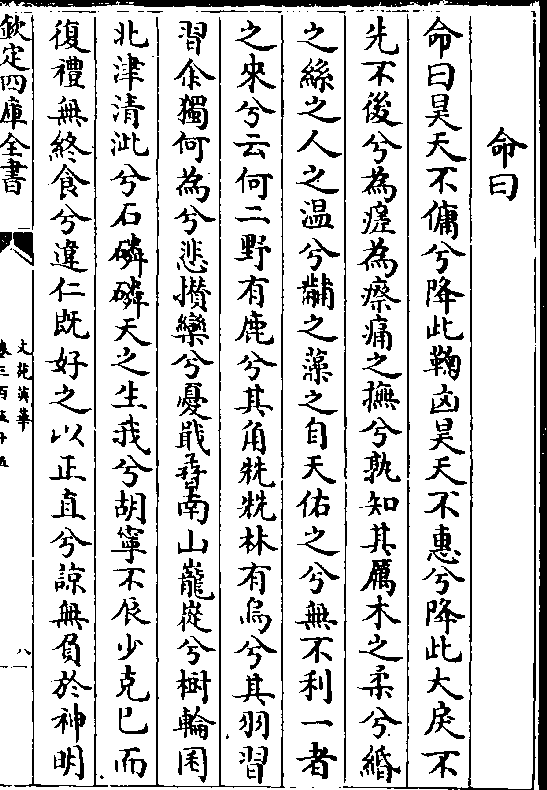 命曰
命曰昊天不傭兮降此鞠凶昊天不惠兮降此大戾不
先不後兮為瘥為瘵痛之撫兮孰知其厲木之柔兮緡
之絲之人之温兮黼之藻之自天佑之兮無不利一者
之來兮云何二野有鹿兮其角兟兟林有烏兮其羽習
習余獨何為兮悲攢欒兮憂戢㝷南山巃嵸兮樹輪囷
北津清泚兮石磷磷天之生我兮胡寧不辰少克己而
復禮無終食兮違仁既好之以正直兮諒無負於神明
欽定四庫全書
文苑英華
卷三百五十五
八